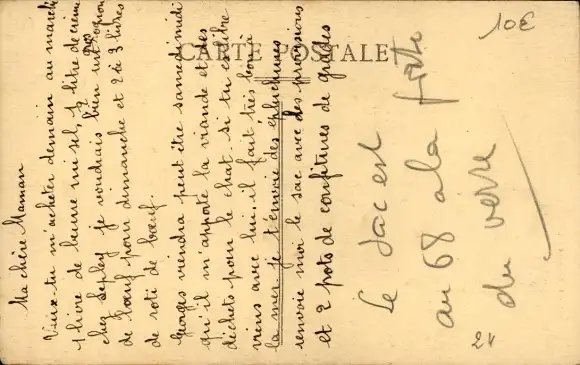 CARTE POSTALE
10€
Ma chère Maman
Veux-tu m'acheter demain au marché
1 livre de beurre mi sel, 1 litre de crème
chez Lepley je voudrais bien un rognon
de bœuf pour dimanche et 2 à 3 livres
de roti de bœuf.
Georges viendra peut être samedi midi
qu'il m'apporte la viande et des
déchets pour le chat. si tu es libre
viens avec lui. il fait très bon à
la mer. je t'envoie des épluchures
renvoie moi le sac avec des provisions
et 2 pots de confitures de grades
Le sac est
au 68 a la
porte
du verre